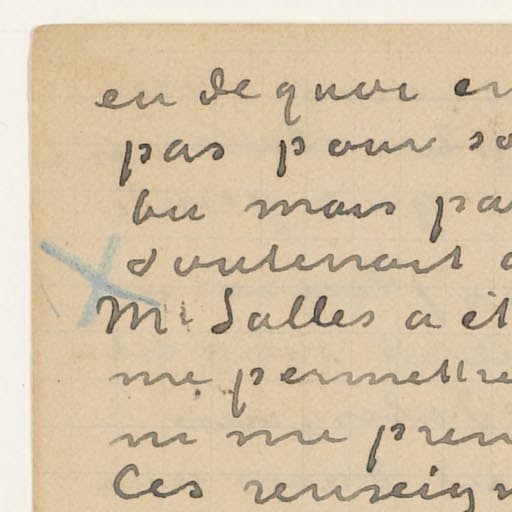 en de quoi en
pas pour so
ou mais pa
soutenait
Mr Salles a ét
me permettre
ni me pren
Ces renseign